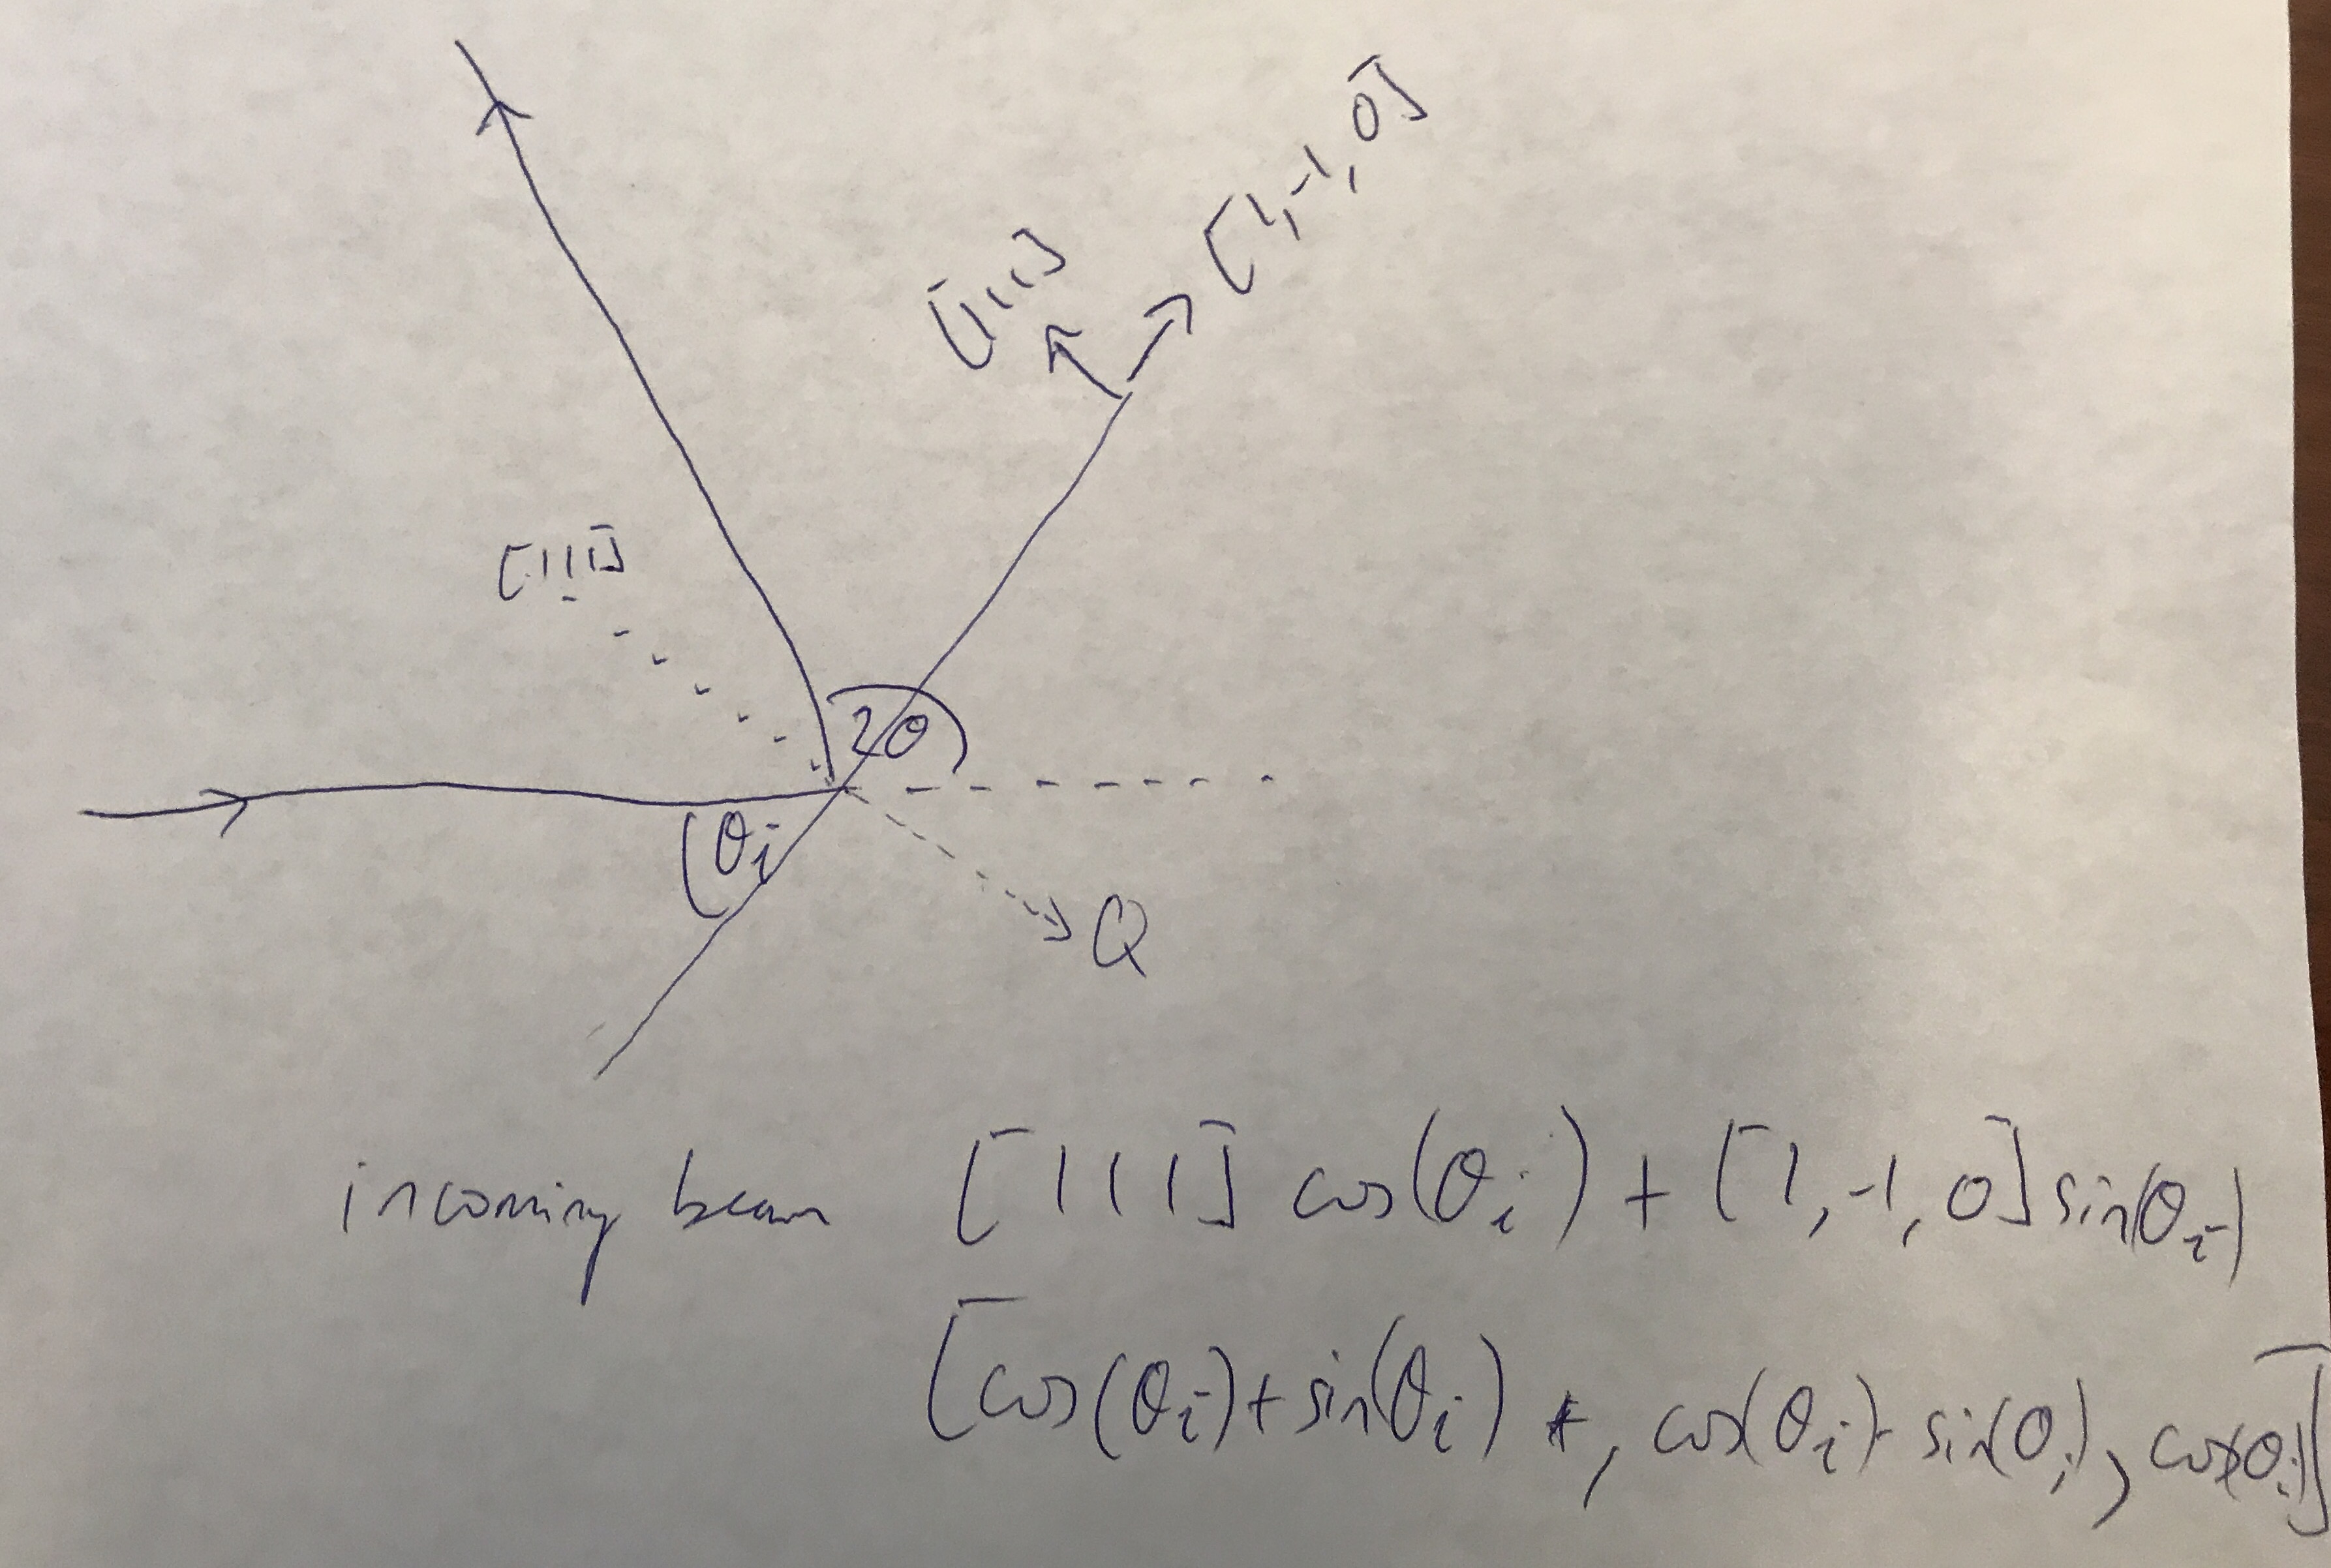 [1,-1,0]
[111]
[111]
2θ
θi
Q
incoming beam [111] cos(θi) + [1,-1,0] sin(θi)
[cos(θi)+sin(θi) , cos(θi)-sin(θi), cos(θi)]